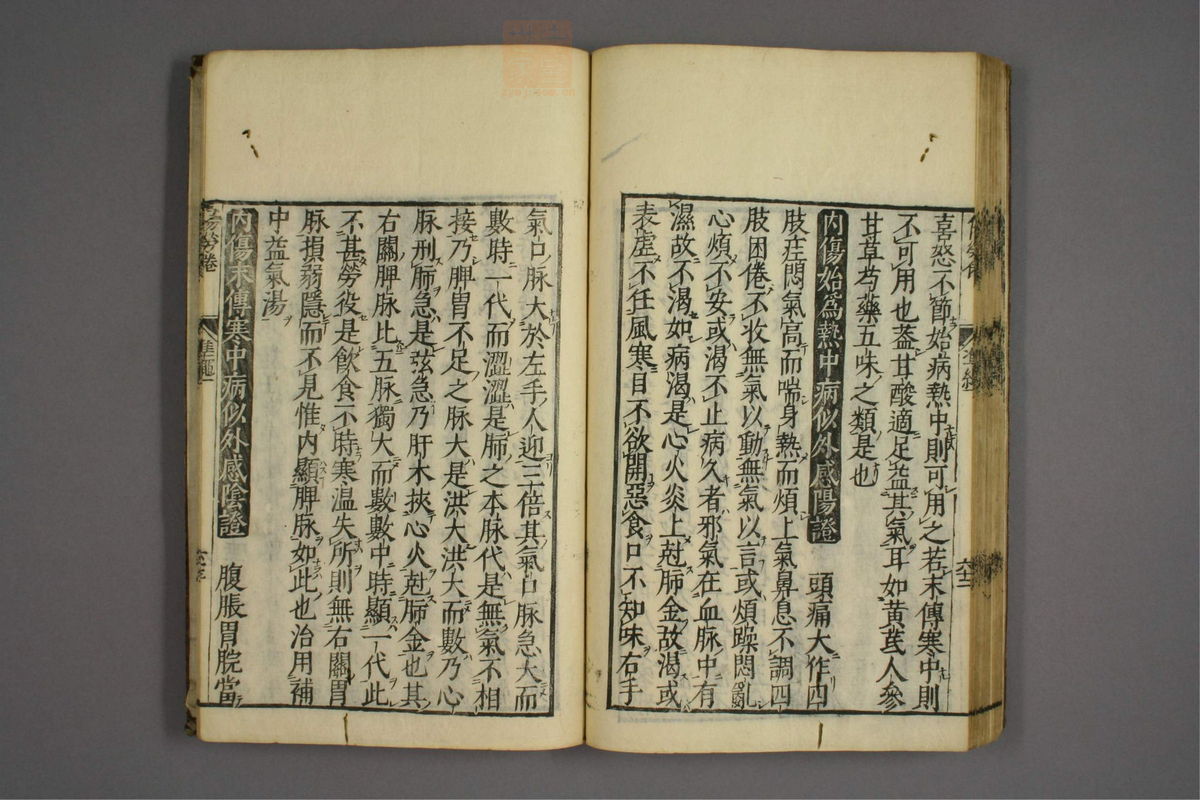 喜怒不節始病熱中則可用之若末傳寒中則
不可用也蓋甘酸適足益其氣耳如黃芪人參
甘草芍藥五味之類是也
內傷始爲熱中病似外感陽證 頭痛大作四
肢疰悶氣高而喘身熱而煩上氣鼻息不調四
肢困倦不收無氣以動無氣以言或煩躁悶亂
心煩不安或渴不止病久者邪氣在血脉中有
濕故不渴如病渴是心火炎上尅肺金故渴或
表虛不任風寒目不欲開惡食口不知味右手
氣口脉大於左手人迎三倍其氣口脉急大而
數時一代而澀澀是肺之本脉代是無氣不相
接乃脾胃不足之脉大是洪大洪大而數乃心
脉刑肺急是弦急乃肝木挾心火尅肺金也其
右關脾脉比五脉獨大而數數中時顯一代此
不甚勞役是飲食不時寒温失所則無右關胃
脉損弱隱而不見惟內顯脾脉如此也治用補
中益氣湯
內傷末傳寒中病似外感陰證 腹脹胃脘當